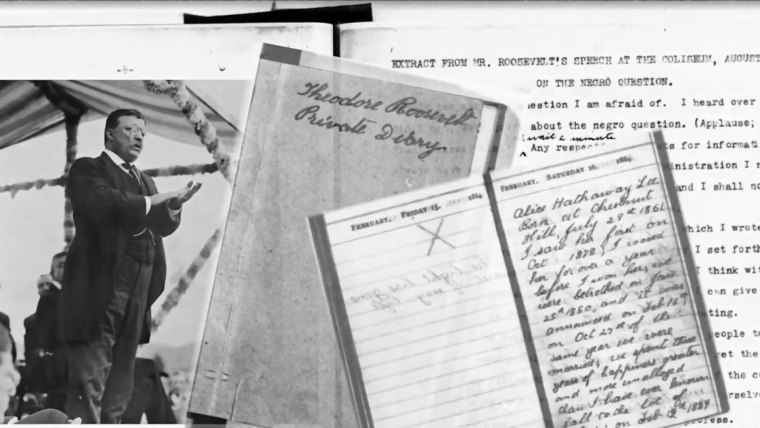 EXTRACT FROM MR. ROOSEVELT'S SPEECH AT THE COLISEUM, AUGUST
ON THE NEGRO QUESTION.
estion I am afraid of. I heard over
about the negro question. (Applause;
wait a minute
Any
ts for informati
ministration I
and I shall no
hich I wrote
I set forth
I think wit
can give
ting.
people to
et the
the co
rselve
ess.
Theodore Roosevelt
Private Diary
FEBRUARY, FRIDAY 15, 1884.
X
FEBRUARY, SATURDAY 16, 1884.
Alice Hathaway Lee.
Born at Chestnut
Hill, July 29th 1861.
I saw her first on
Oct 1878; I wooed
her for over a year
before I won her; we
were betrothed on Jan
25th 1880, and it was
announced on Feb 16th
on Oct 27th of the
same year we were
married; we spent three
years of happiness greater
and more unalloyed
than I have ever known
fall to the lot of
on Feb 12th 1884